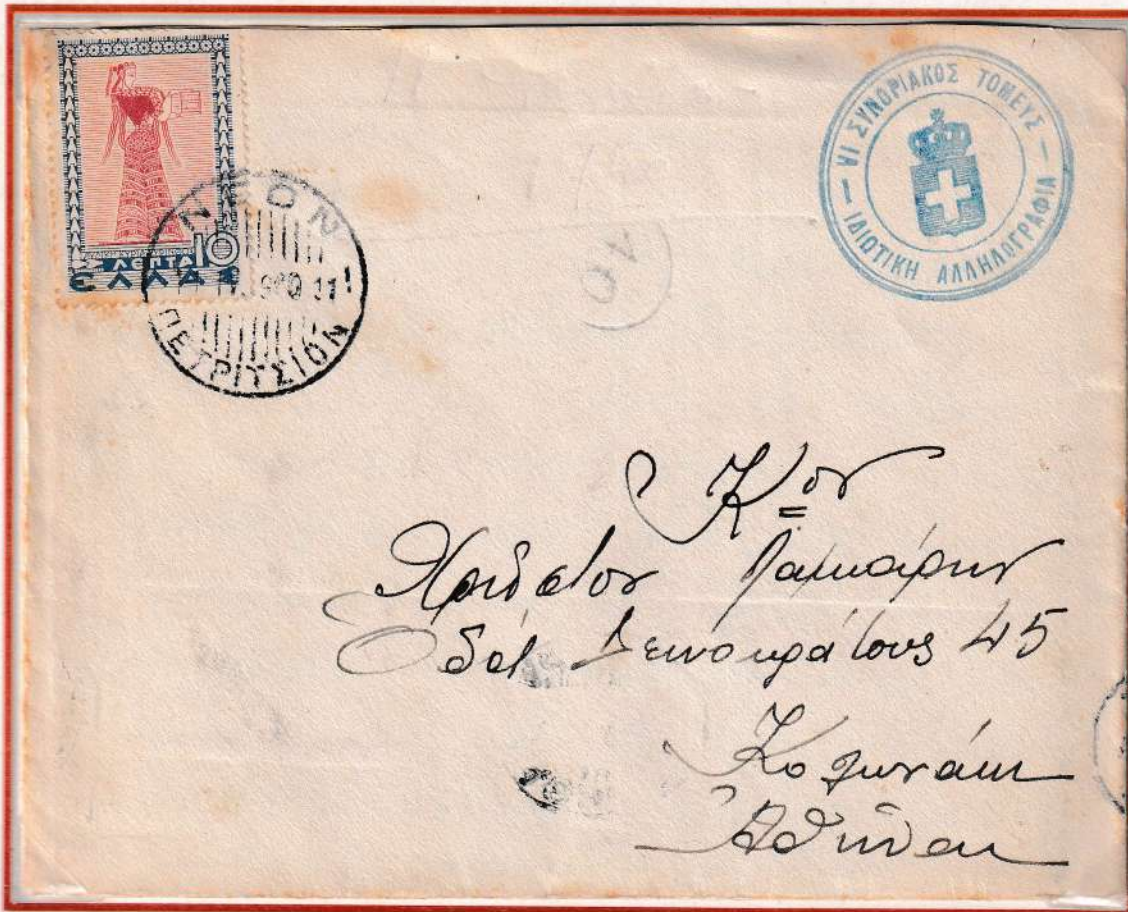 ΛΕΠΤΑ 10
ΕΛΛΑΣ
ΝΕΟΝ
ΠΕΤΡΙΤΣΙΟΝ
VI ΣΥΝΟΡΙΑΚΟΣ ΤΟΜΕΥΣ —
— ΙΔΙΩΤΙΚΗ ΑΛΛΗΛΟΓΡΑΦΙΑ
Κον
Χρίστον
Οδός Ξεινοκράτους 45
Κολωνάκι
Αθήναι